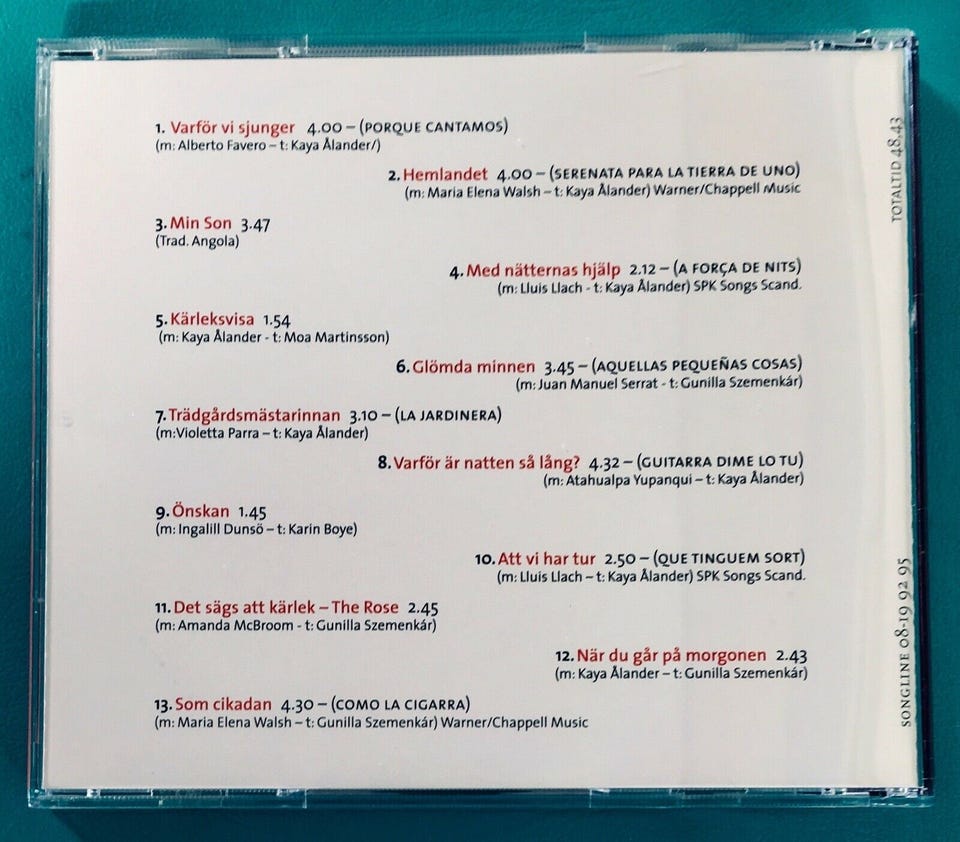 1. Varför vi sjunger 4.00 – (PORQUE CANTAMOS)
(m: Alberto Favero – t: Kaya Ålander/)
2. Hemlandet 4.00 – (SERENATA PARA LA TIERRA DE UNO)
(m: Maria Elena Walsh – t: Kaya Ålander) Warner/Chappell Music
3. Min Son 3.47
(Trad. Angola)
4. Med nätternas hjälp 2.12 – (A FORÇA DE NITS)
(m: Lluis Llach - t: Kaya Ålander) SPK Songs Scand.
5. Kärleksvisa 1.54
(m: Kaya Ålander - t: Moa Martinsson)
6. Glömda minnen 3.45 – (AQUELLAS PEQUEÑAS COSAS)
(m: Juan Manuel Serrat - t: Gunilla Szemenkár)
7. Trädgårdsmästarinnan 3.10 – (LA JARDINERA)
(m:Violetta Parra – t: Kaya Ålander)
8. Varför är natten så lång? 4.32 – (GUITARRA DIME LO TU)
(m: Atahualpa Yupanqui – t: Kaya Ålander)
9. Önskan 1.45
(m: Ingalill Dunsö – t: Karin Boye)
10. Att vi har tur 2.50 – (QUE TINGUEM SORT)
(m: Lluis Llach – t: Kaya Ålander) SPK Songs Scand.
11. Det sägs att kärlek – The Rose 2.45
(m: Amanda McBroom - t: Gunilla Szemenkár)
12. När du går på morgonen 2.43
(m: Kaya Ålander – t: Gunilla Szemenkár)
13. Som cikadan 4.30 – (COMO LA CIGARRA)
(m: Maria Elena Walsh – t: Gunilla Szemenkár) Warner/Chappell Music
TOTALTID 48.43
SONGLINE 08-19 92 95